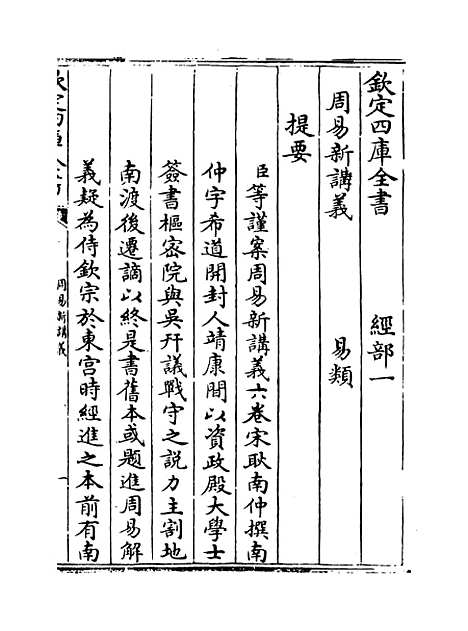 欽定四庫全書　經部一
周易新講義　易類
提要
臣等謹案周易新講義六卷宋耿南仲撰南
仲字希道開封人靖康間以資政殿大學士
簽書樞密院與吳幵議戰守之說力主割地
南渡後遷謫以終是書舊本或題進周易解
義疑為侍欽宗於東宮時經進之本前有南
周易新講義
一